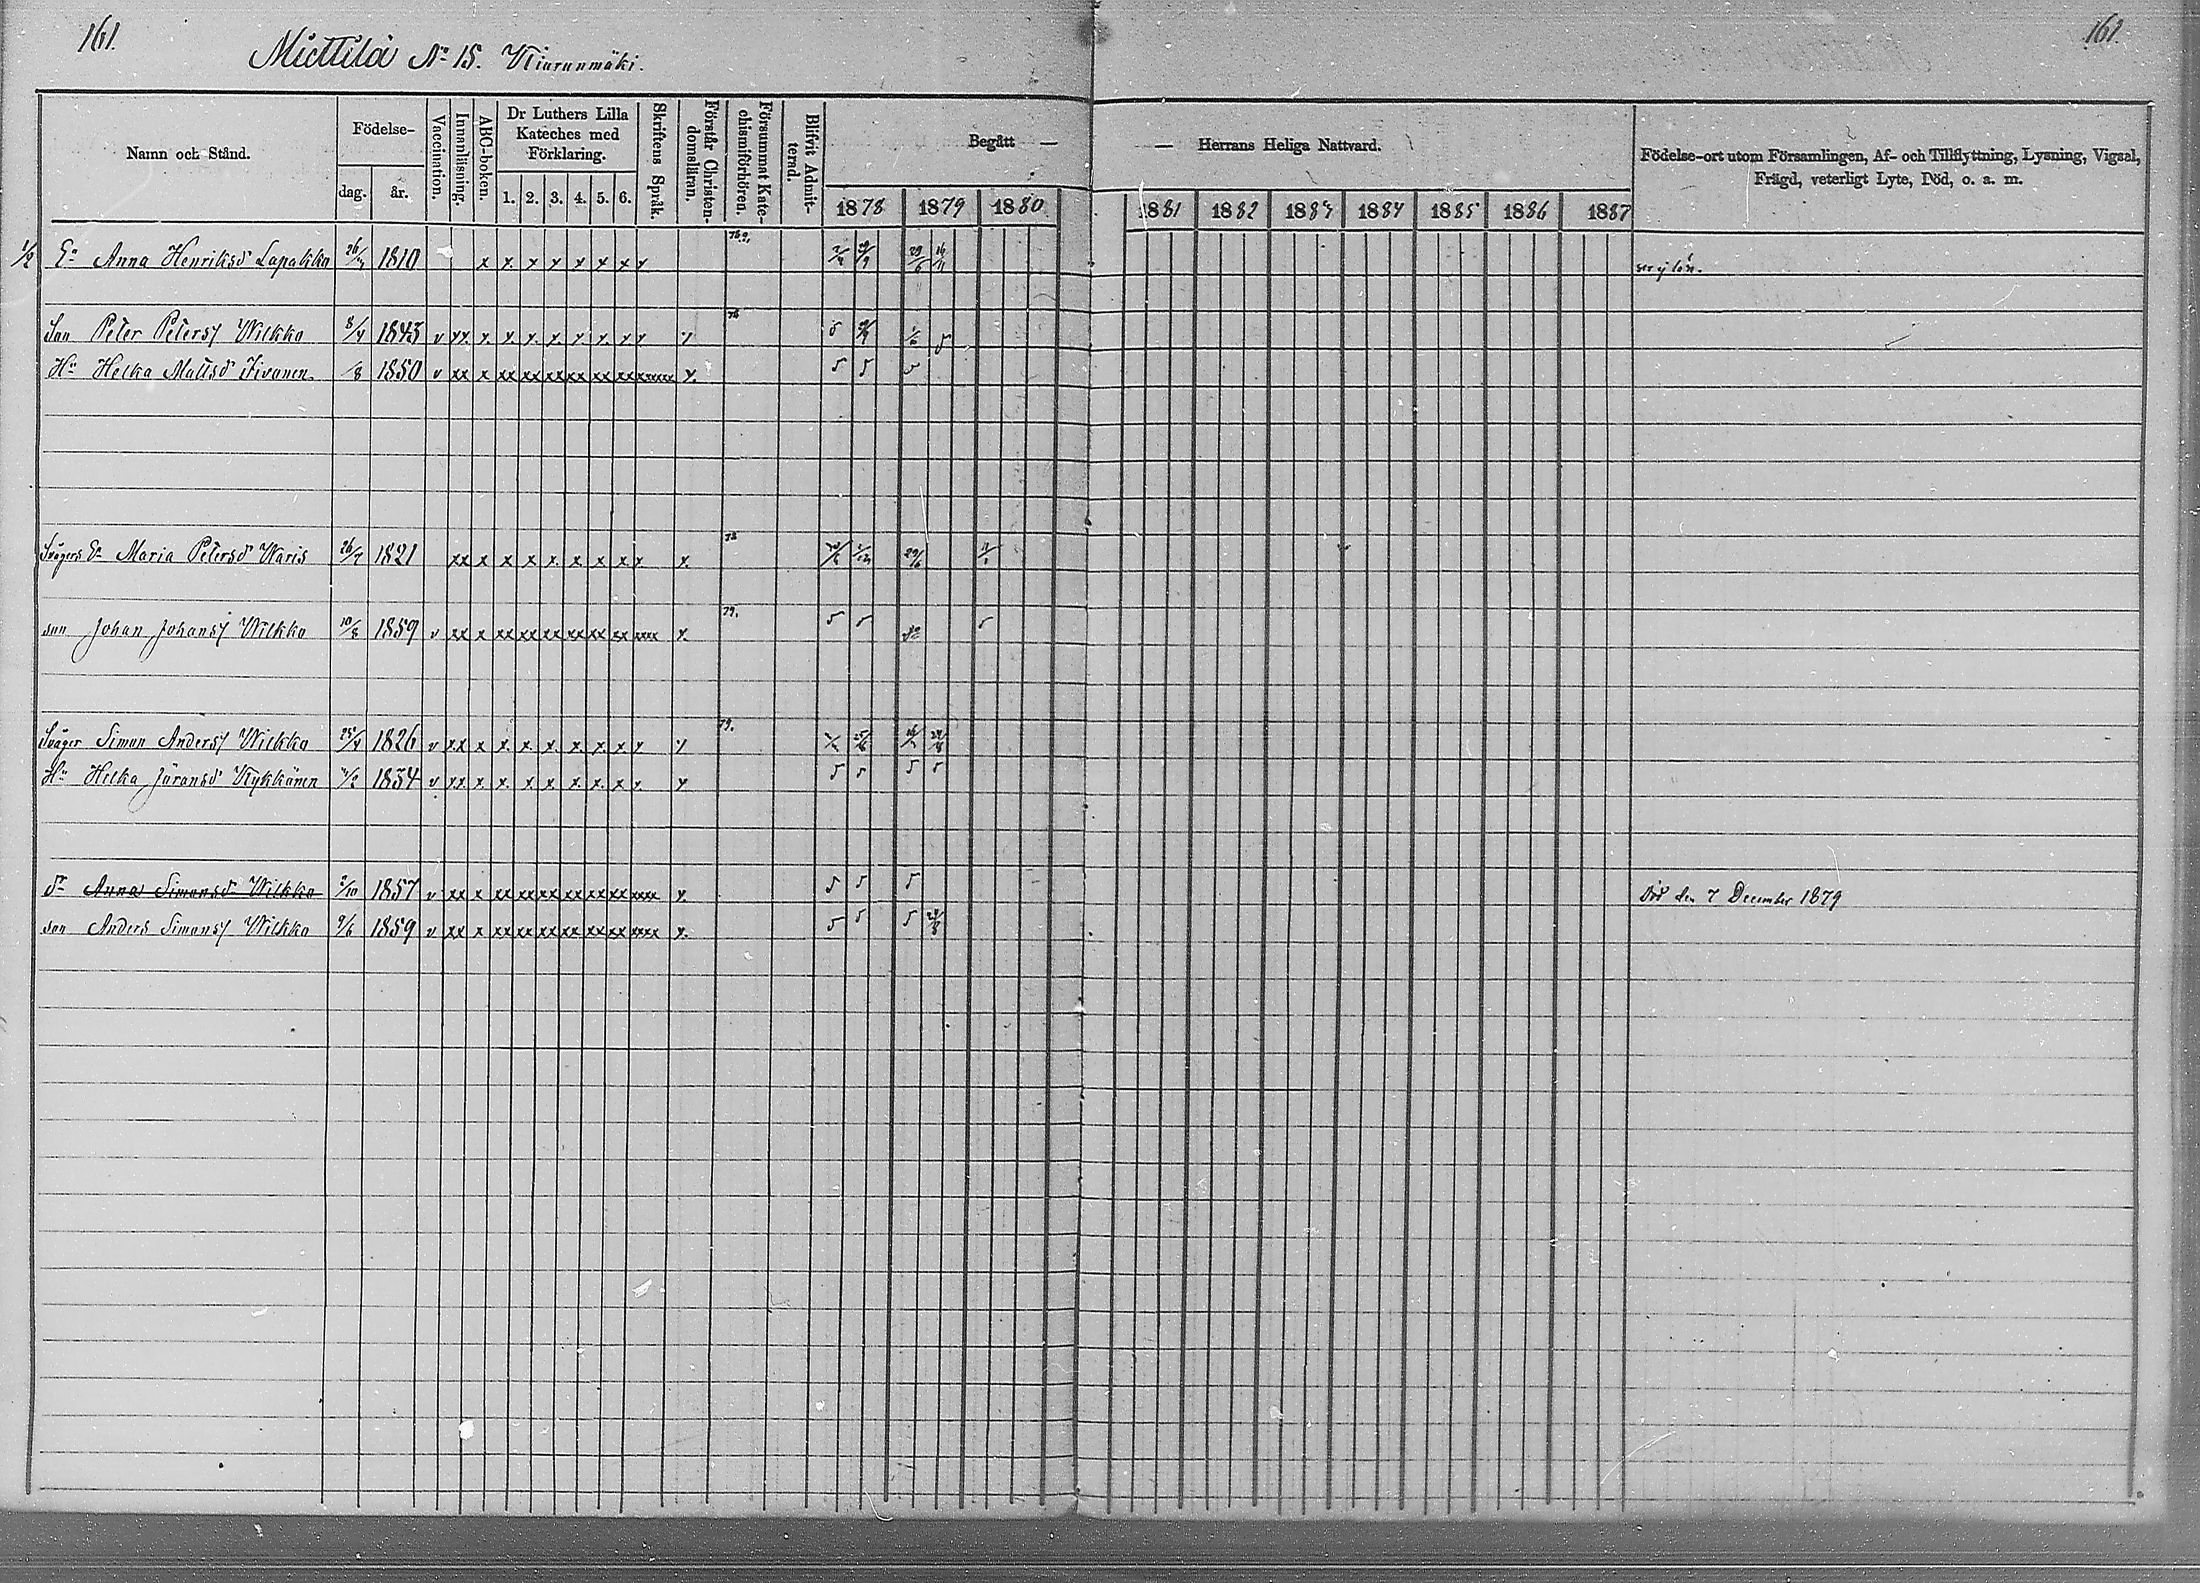 161.
161.
Miettilä No 15. Kiurunmäki.
Namn och Stånd.
Födelse-
dag.
år.
Vaccination.
Innanläsning.
ABC-boken.
Dr Luthers Lilla
Kateches med
Förklaring.
1. 2. 3. 4. 5. 6.
Skriftens Språk.
Förstår Christen-
domsläran.
Försummat Kate-
chismiförhören.
Blifvit Admit-
terad.
Begått —
— Herrans Heliga Nattvard.
1878 1879 1880
1881 1882 1883 1884 1885 1886 1887
Födelse-ort utom Församlingen, Af- och Tillflyttning, Lysning, Vigsal,
Frägd, veterligt Lyte, Död, o. a. m.
1/2 Ea Anna Henriksdr Lapakko 1810 x x x x x x x x 29/6 16/11
Son Peter Peters/ Wilkko 8/4 1843 v xx x x x x x x x x x
Hu Helka Mattsdr Iivonen /8 1850 v xx x xx xx xx xx xx xx xxxxx x
Svägers Ea Maria Petersdr Waris 26/7 1821 xx x x x x x x x x x 78 29/6
son Johan Johans/ Wilkko 10/8 1859 v xx x xx xx xx xx xx xx xxxx x 79.
Svåger Simon Anders/ Wilkko 25/4 1826 v xx x x x x x x x x x 79.
Hu Helka Jöransdr Kykkänen 1834 v xx x x x x x x x x x
Dr Anna Simonsdr Wilkko 2/10 1857 v xx x xx xx xx xx xx xx xxxx x Död den 7 December 1879
son Anders Simons/ Wilkko 9/6 1859 v xx x xx xx xx xx xx xx xxxx x